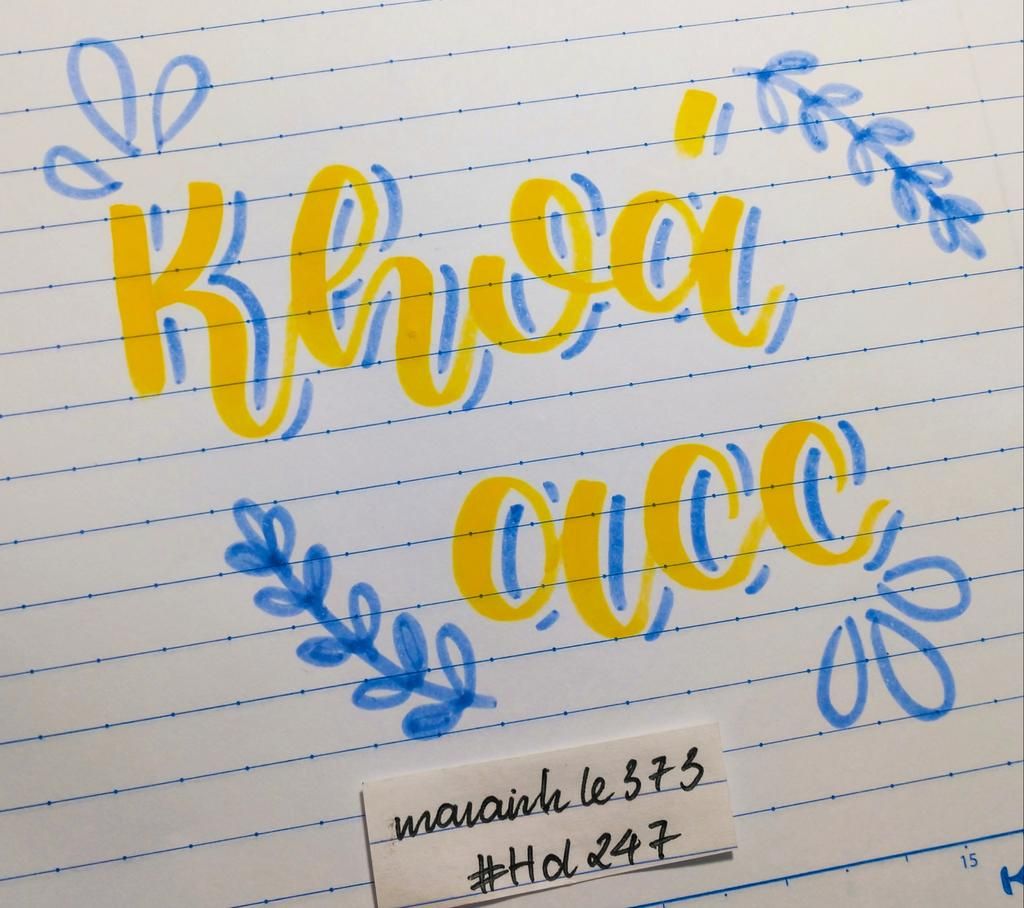 Khoá
acc
maiainh le 373
#Hd 247
15